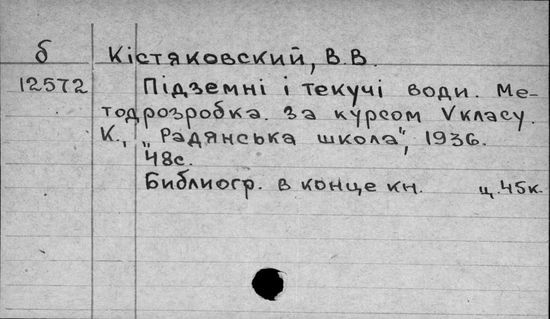 б Кістяковский, В.В.
12572 Підземні і текучі води. Ме-
тодрозробка за курсом V класу.
К., „Радянська школа", 1936.
48с.
Библиогр. в конце кн. ц.45к.